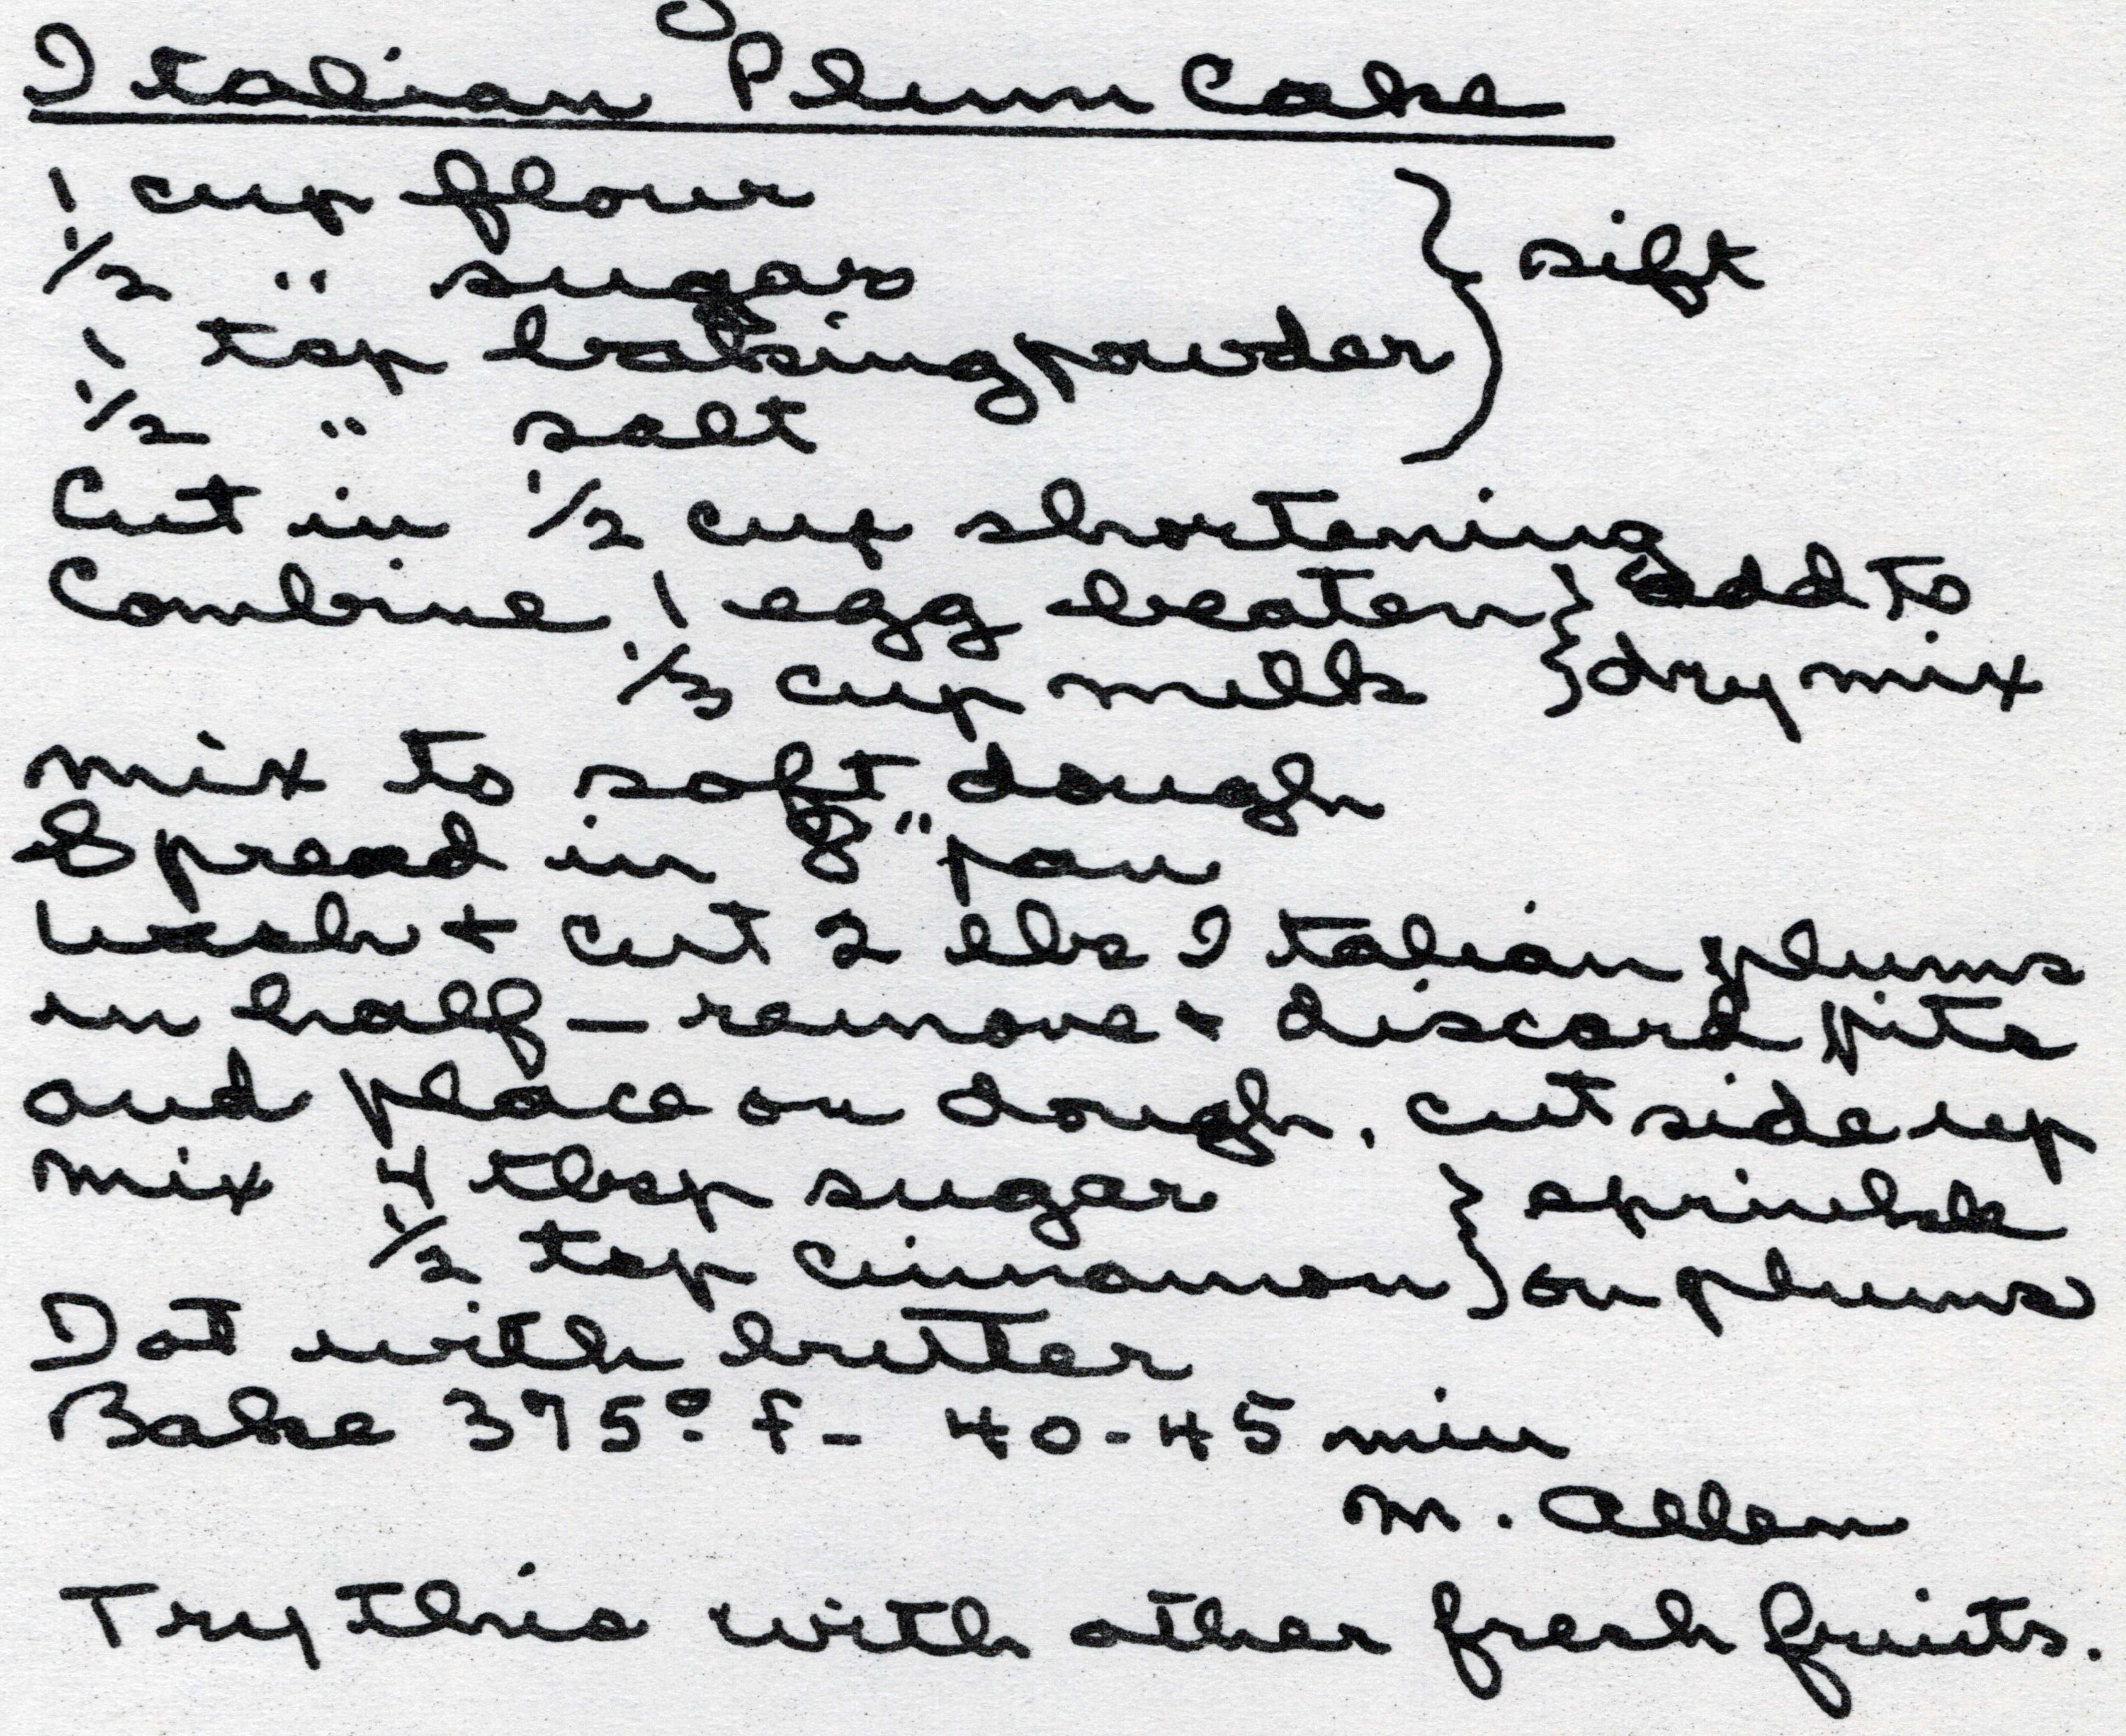 Italian Plum Cake
1 cup flour } sift
1/2 " sugar
1 tsp baking powder
1/2 " salt
Cut in 1/2 cup shortening
Combine 1 egg beaten } add to
1/3 cup milk } dry mix
mix to soft dough
Spread in 8" pan
wash + cut 2 lbs Italian plums
in half — remove + discard pits
and place on dough, cut side up
mix 4 tbsp sugar } sprinkle
1/2 tsp cinnamon } on plums
Dot with butter
Bake 375° F - 40-45 min
M. Allen
Try this with other fresh fruits.